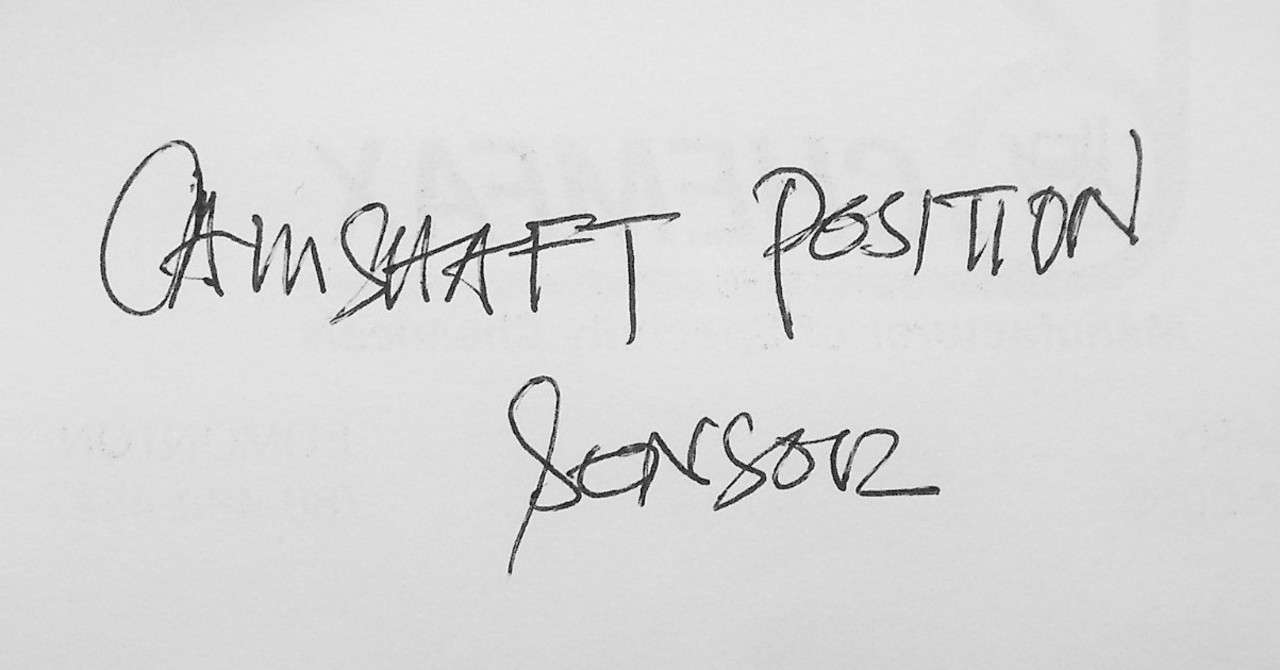 CAMSHAFT POSITION
SENSOR